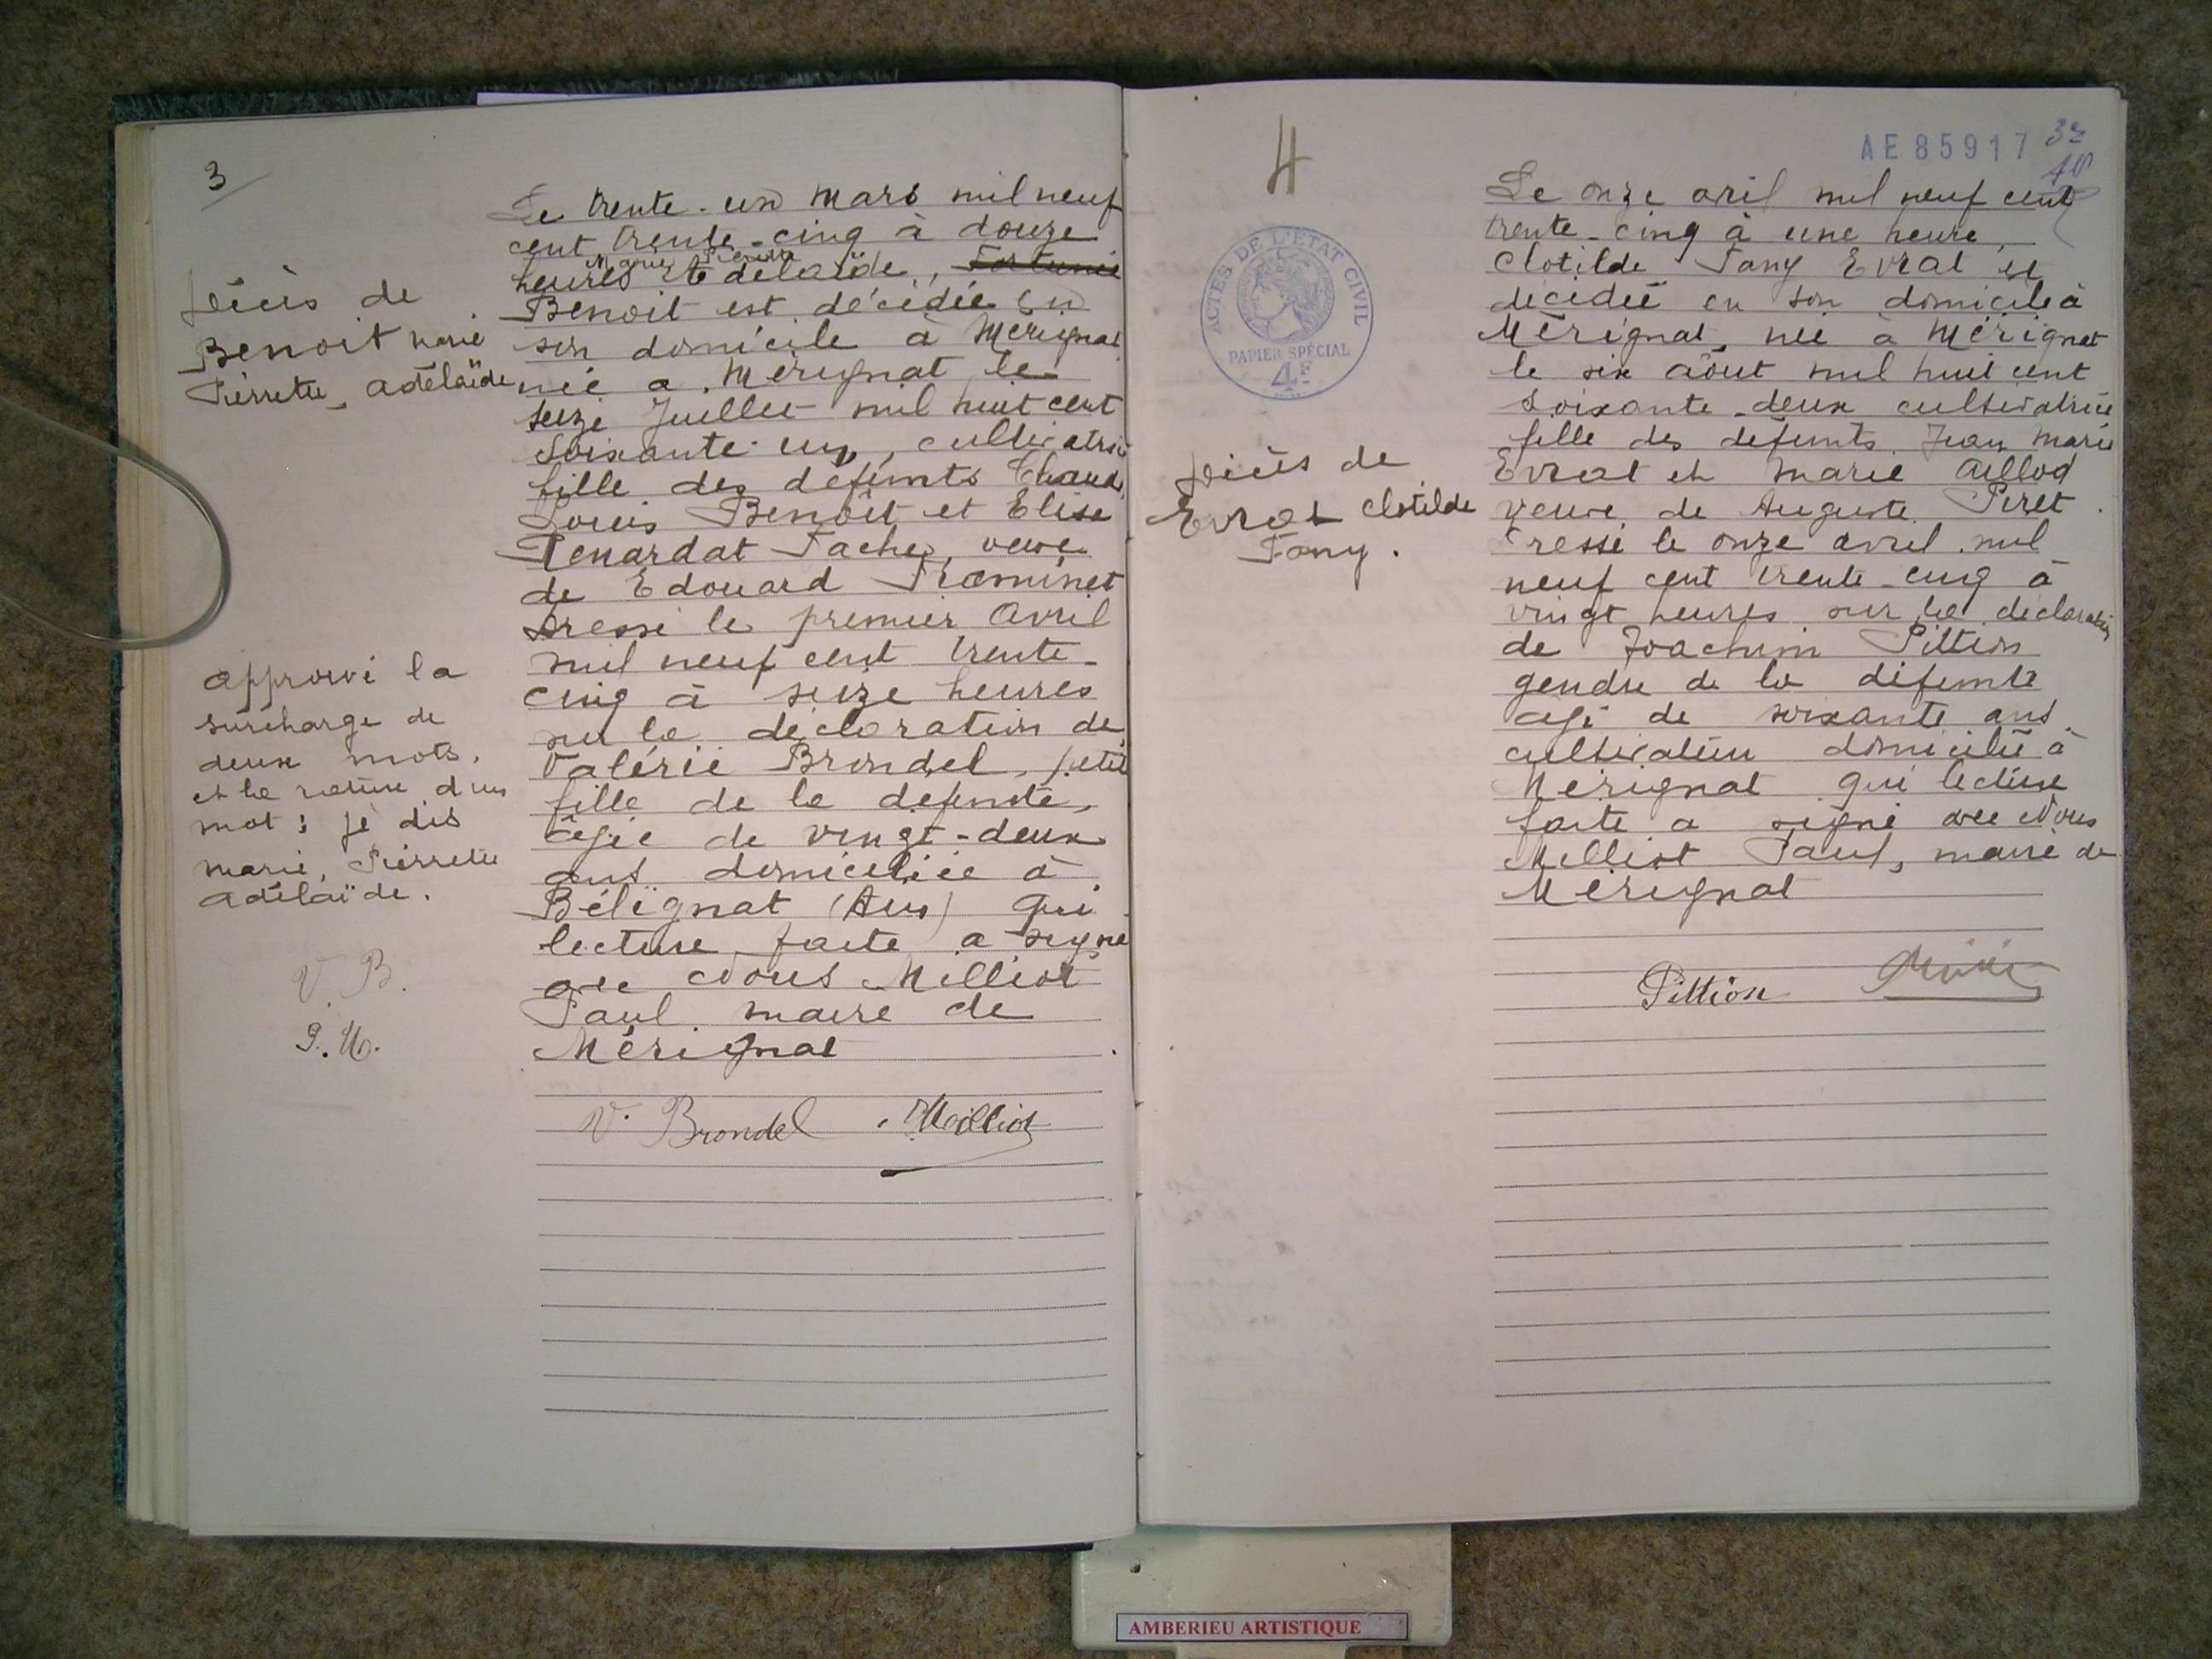 3
Décès de
Benoit Marie
Pierrette, Adélaïde
approuvé la
surcharge de
deux mots,
et la rature d'un
mot : je dis
Marie, Pierrette
Adélaïde.
V. B.
P. M.
Le trente-un Mars mil neuf
cent trente-cinq à douze
Marie Pierrette
heures Adélaïde, Fortunée
Benoit est décédée en
son domicile à Mérignat
née à Mérignat le
seize Juillet mil huit cent
soixante un, cultivatrice
fille des défunts
Louis Benoît et Elise
Tenardat Tache, veuve
de Edouard Framinet
Dressé le premier Avril
mil neuf cent trente-
cinq à seize heures
sur la déclaration de
Valérie Brondel, petite
fille de la défunte,
âgée de vingt-deux
ans domiciliée à
Bélignat (Ain) qui
lecture faite a signé
avec Nous Milliot
Paul, maire de
Mérignat
V. Brondel Milliot
4
AE 85917
ACTES DE L'ÉTAT CIVIL
PAPIER SPÉCIAL
4F
Décès de
Evrat Clotilde
Fany.
Le onze avril mil neuf cent
trente-cinq à une heure,
Clotilde Fany Evrat est
décédée en son domicile à
Mérignat, née à Mérignat
le six août mil huit cent
soixante-deux cultivatrice
fille des défunts Jean Marie
Evrat et Marie Aillod
veuve de Auguste Piret.
Dressé le onze avril mil
neuf cent trente-cinq à
vingt heures sur la déclaration
de Joachim Pittion
gendre de la défunte
âgé de soixante ans
cultivateur domicilié à
Mérignat qui lecture
faite a signé avec Nous
Milliot Paul, maire de
Mérignat
Pittion
AMBERIEU ARTISTIQUE